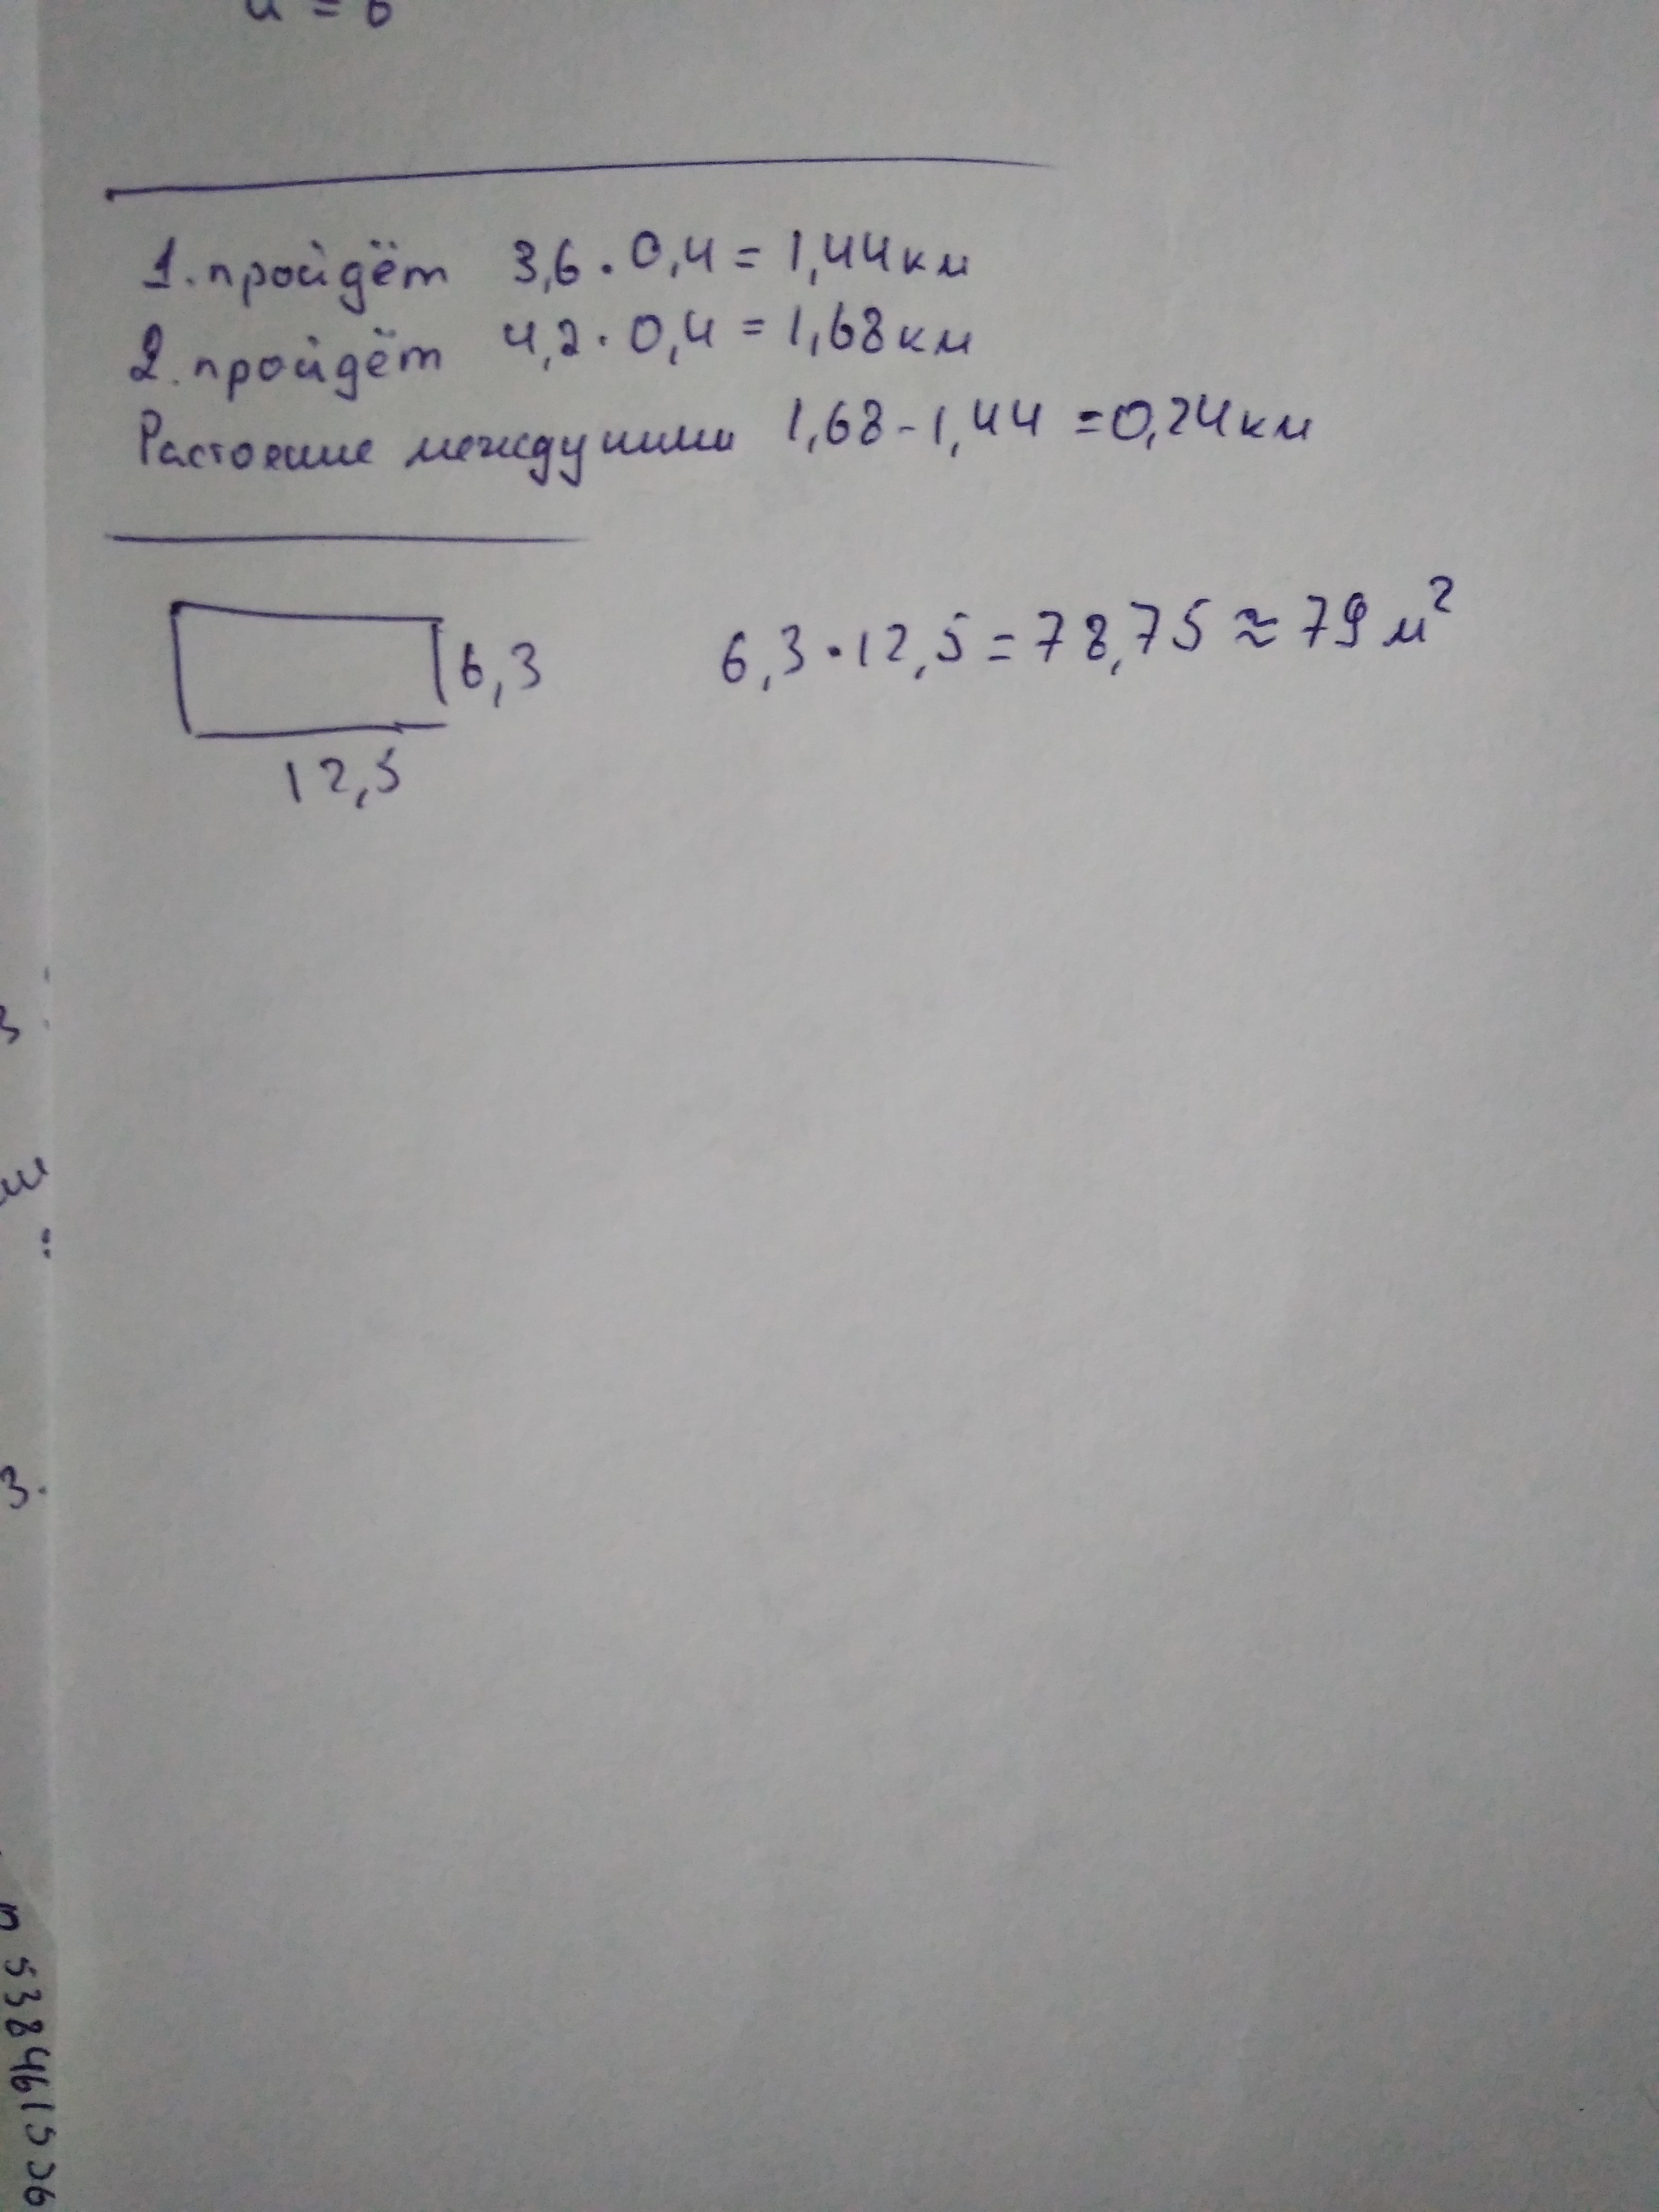 1. пройдём 3,6 · 0,4 = 1,44 км
2. пройдём 4,2 · 0,4 = 1,68 км
Растояние между ними 1,68 - 1,44 = 0,24 км
6,3 6,3 · 12,5 = 78,75 ≈ 79 м²
12,5
3.